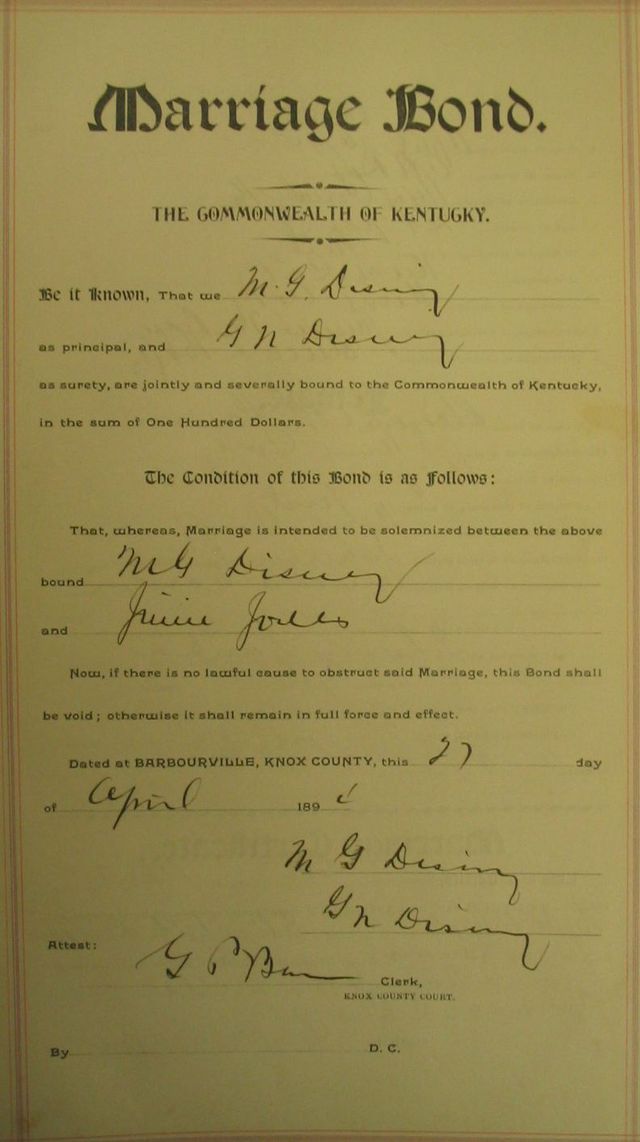 Marriage Bond.
THE COMMONWEALTH OF KENTUCKY.
Be it Known, That we M. G. Disney
as principal, and G N Disney
as surety, are jointly and severally bound to the Commonwealth of Kentucky,
in the sum of One Hundred Dollars.
The Condition of this Bond is as Follows:
That, whereas, Marriage is intended to be solemnized between the above
bound M G Disney
and
Now, if there is no lawful cause to obstruct said Marriage, this Bond shall
be void; otherwise it shall remain in full force and effect.
Dated at BARBOURVILLE, KNOX COUNTY, this 27 day
of April 189
M G Disney
G N Disney
Attest:
G P Clerk,
KNOX COUNTY COURT.
By D. C.